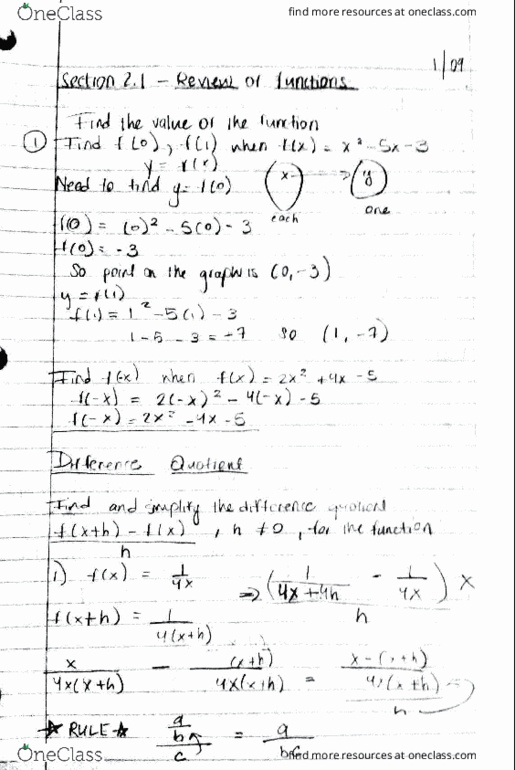 OneClass
find more resources at oneclass.com
1/09
Section 2.1 - Review of functions
Find the value of the function
① Find f(0), f(1) when f(x) = x² - 5x - 3
y = f(x)
Need to find y = f(0)
x → y
each one
f(0) = (0)² - 5(0) - 3
f(0) = -3
So point on the graph is (0, -3)
y = f(1)
f(1) = 1² - 5(1) - 3
1 - 5 - 3 = -7 so (1, -7)
Find f(-x) when f(x) = 2x² + 4x - 5
f(-x) = 2(-x)² - 4(-x) - 5
f(-x) = 2x² - 4x - 5
Difference Quotient
Find and simplify the difference quotient
f(x+h) - f(x) / h , h ≠ 0, for the function
1) f(x) = 1/4x ⇒ (1/4x+4h - 1/4x) x / h
f(x+h) = 1/4(x+h)
x/4x(x+h) - (x+h)/4x(x+h) = x-(x+h)/4x(x+h) / h
★ RULE ★ a/b / c = a/bc
OneClass
find more resources at oneclass.com